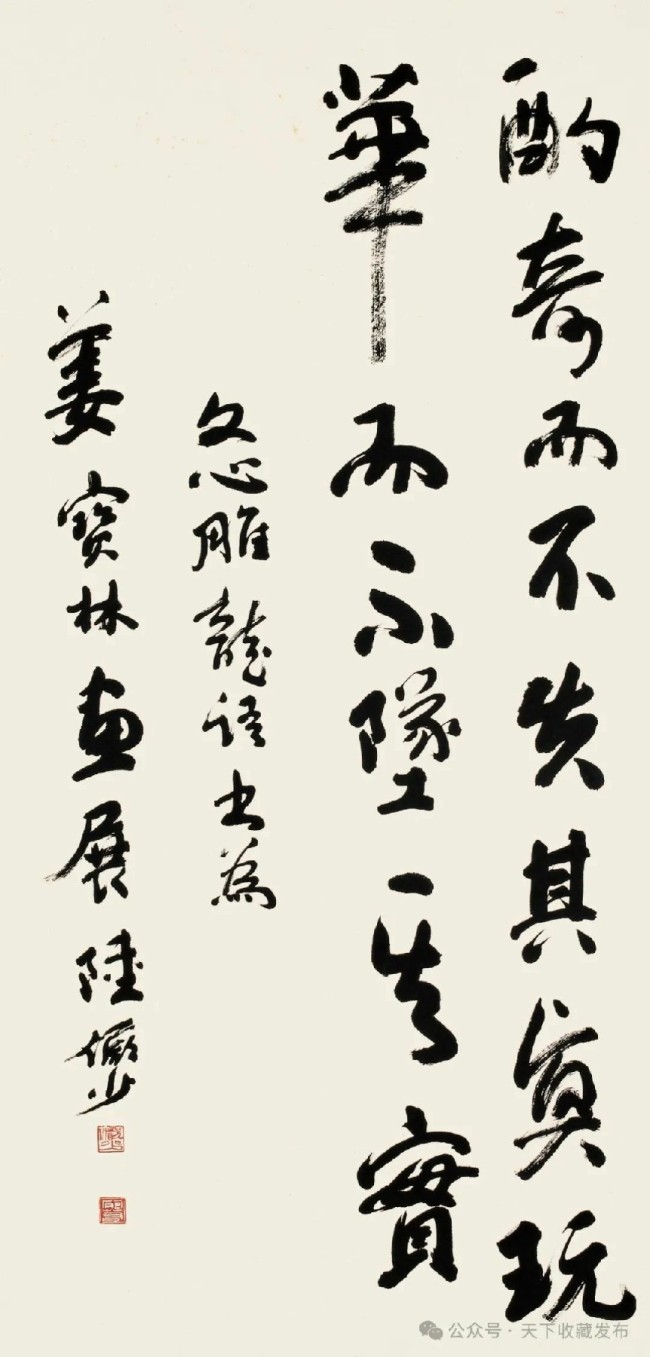 酌奇而不失其真玩
華而不墜其實
文心雕龍語書為
姜寶林畫展 陸儼少
公众号·天下收藏发布